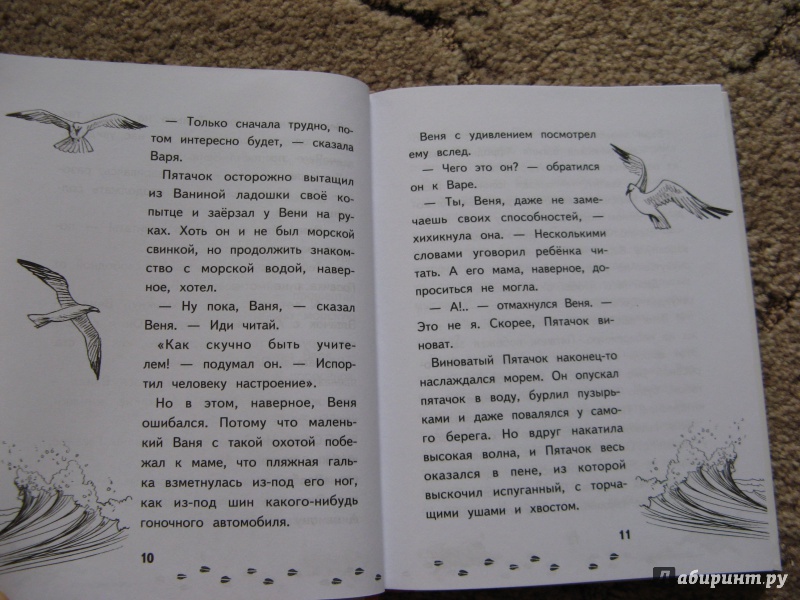 — Только сначала трудно, по-
том интересно будет, — сказала
Варя.
Пятачок осторожно вытащил
из Ваниной ладошки своё ко-
пытце и заёрзал у Вени на ру-
ках. Хоть он и не был морской
свинкой, но продолжить знаком-
ство с морской водой, навер-
ное, хотел.
— Ну пока, Ваня, — сказал
Веня. — Иди читай.
«Как скучно быть учите-
лем! — подумал он. — Испор-
тил человеку настроение».
Но в этом, наверное, Веня
ошибался. Потому что малень-
кий Ваня с такой охотой побе-
жал к маме, что пляжная галь-
ка взметнулась из-под его ног,
как из-под шин какого-нибудь
гоночного автомобиля.
10
Веня с удивлением посмотрел
ему вслед.
— Чего это он? — обратился
он к Варе.
— Ты, Веня, даже не заме-
чаешь своих способностей, —
хихикнула она. — Несколькими
словами уговорил ребёнка чи-
тать. А его мама, наверное, до-
проситься не могла.
— А!.. — отмахнулся Веня. —
Это не я. Скорее, Пятачок ви-
новат.
Виноватый Пятачок наконец-то
наслаждался морем. Он опускал
пятачок в воду, бурлил пузырь-
ками и даже повалялся у само-
го берега. Но вдруг накатила
высокая волна, и Пятачок весь
оказался в пене, из которой
выскочил испуганный, с торча-
щими ушами и хвостом.
11
Лабиринт.ру